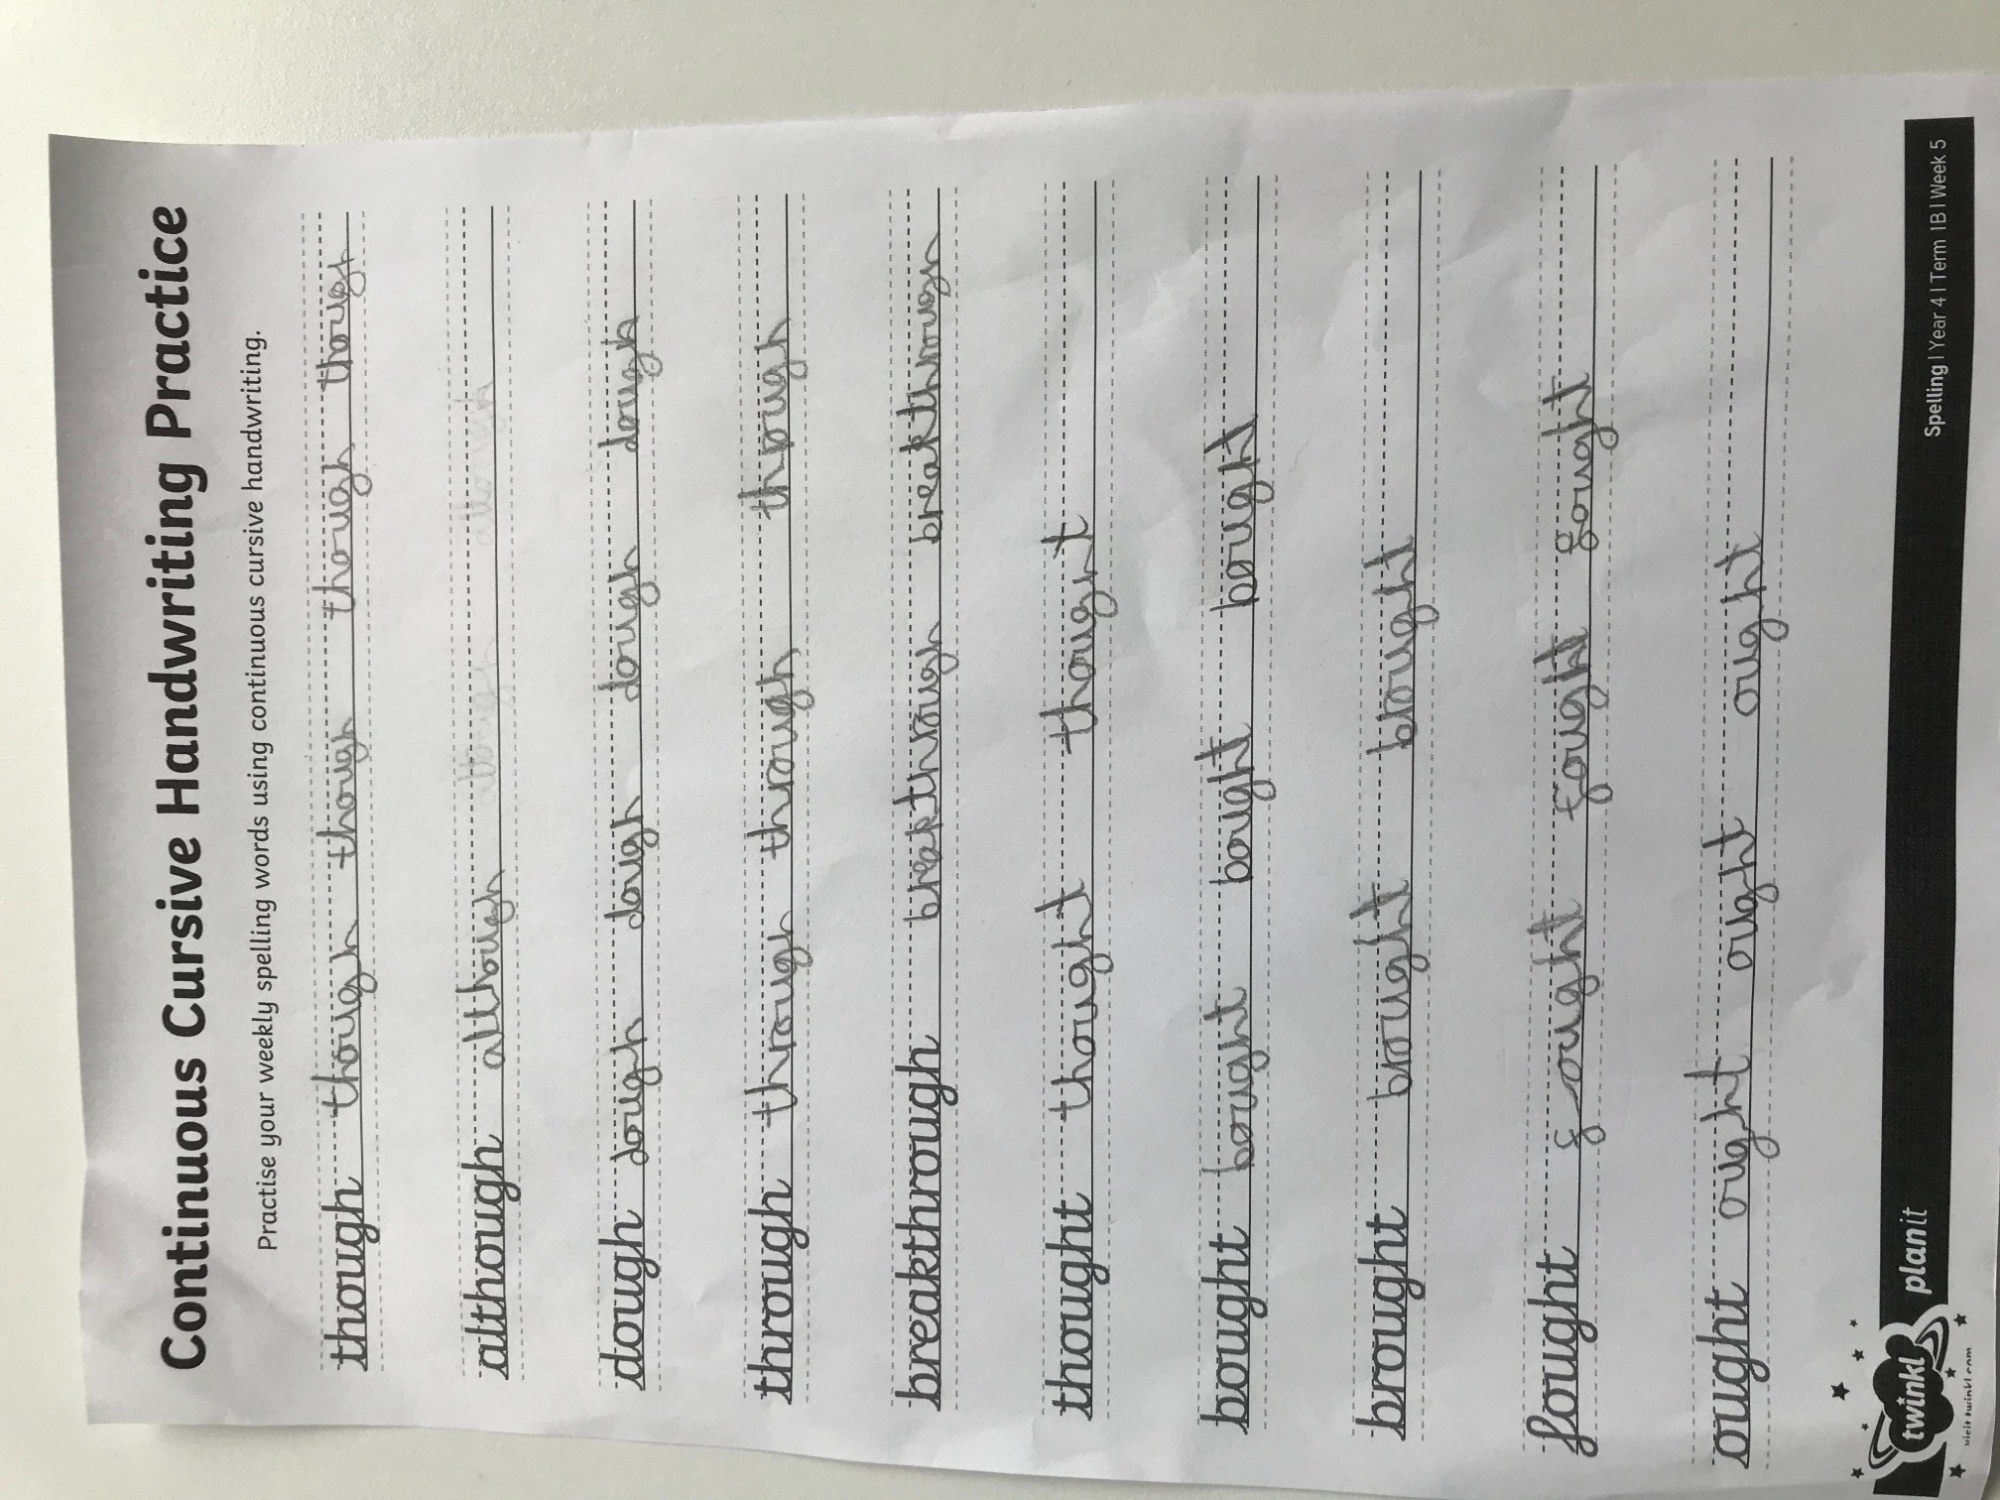 Continuous Cursive Handwriting Practice
Practise your weekly spelling words using continuous cursive handwriting.
though though though though though
although although
dough dough dough dough dough
through through through through thpough
breakthrough breakthrough breakthrough
thought thought thought
bought bought bought bought
brought brought brought
fought fought fought gought
ought ought ought ought
twinkl planit Spelling | Year 4 | Term 1B | Week 5
visit twinkl.com